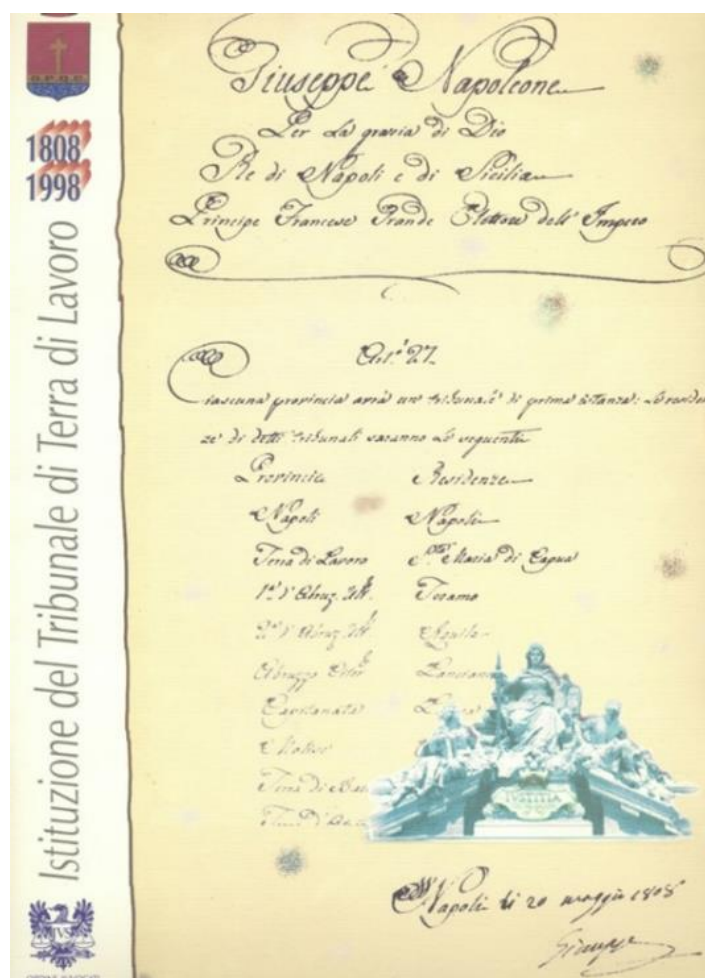 1808
1998
Istituzione del Tribunale di Terra di Lavoro
Giuseppe Napoleone
Per la grazia di Dio
Re di Napoli e di Sicilia
Principe Francese Grande Elettore dell' Impero
Art.º 27.
Ciascuna provincia avrà un tribunale di prima istanza: Le residen
ze di detti tribunali saranno le seguenti
Provincie Residenze
Napoli Napoli
Terra di Lavoro S.ta Maria di Capua
1.º d'Abruz. Ult. Teramo
2.º d'Abruz. Ult. Aquila
Abruzzo Citer. Lanciano
Capitanata
Molise
Terra di
Napoli li 20 maggio 1808
Giuseppe